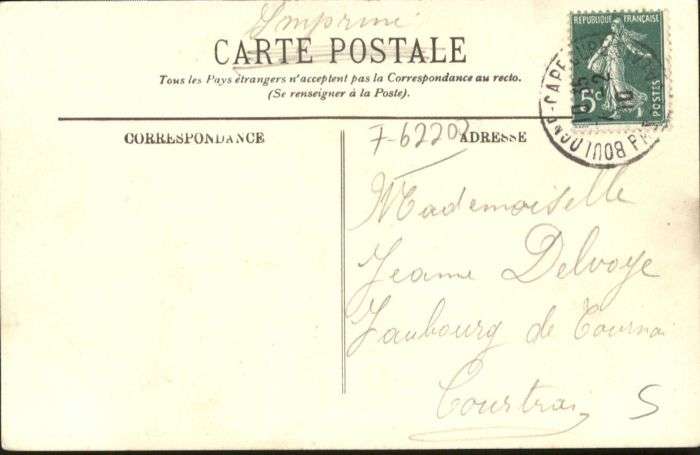 Imprimé
CARTE POSTALE
Tous les Pays étrangers n'acceptent pas la Correspondance au recto.
(Se renseigner à la Poste).
REPUBLIQUE FRANÇAISE
5c
POSTES
BOULOGNE-CAPE
10
CORRESPONDANCE
7-62202
ADRESSE
Mademoiselle
Jeanne Delvoye
Faubourg de Tournai
Courtrai
S